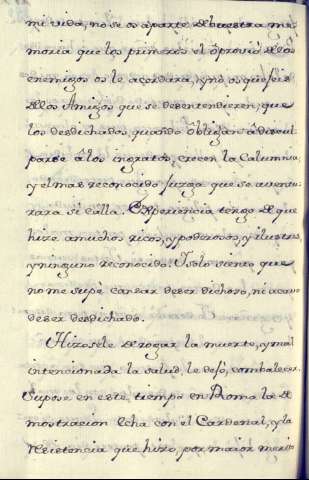 mi vida, no se os aparte de buestra me-
moria que los primeros el oprovio de los
enemigos os le acordara, y no os quejeis
de los Amigos que se desentendieren, que
los desdichados, quando obligan a discul
parse â los ingratos, crecen la Calumnia,
y el mas reconocido juzga que se aventu-
rara si calla. Experiencia tengo de que
hize a muchos ricos, y poderosos, y ilustres,
y ninguno reconocido. Y solo siento que
no me supe cansar de ser dichoso, ni acavo
de ser desdichado.
Hizosele de rogar la muerte, y mal
intencionada la salud, le dejó, combalecer.
Supose en este, tiempo en Roma la de
mostracion echa con el Cardenal, y la
Resistencia que hizo, por maior